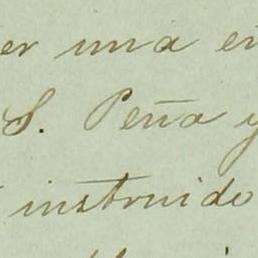 er una en
S. Peña y
instruido